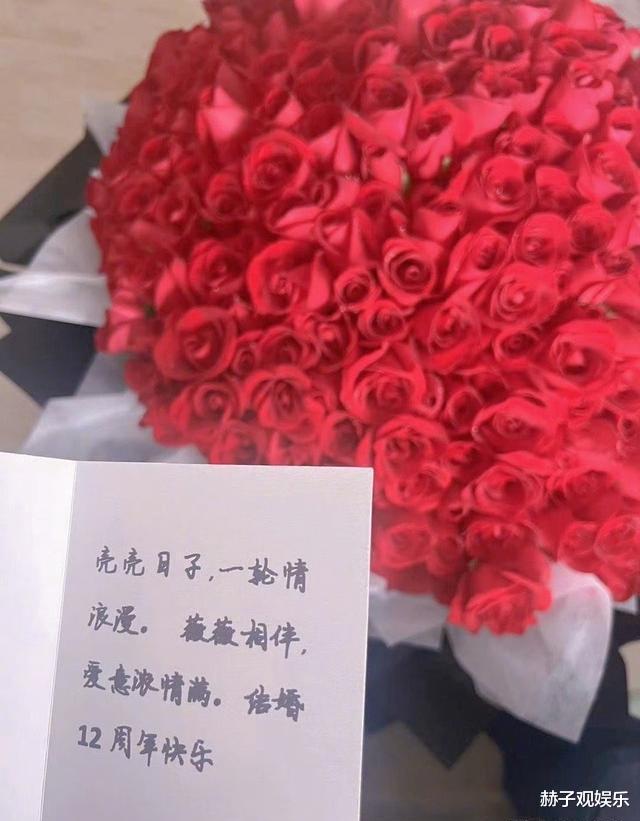 亮亮日子,一轮情
浪漫。薇薇相伴,
爱意浓情满。结婚
12周年快乐
赫子观娱乐